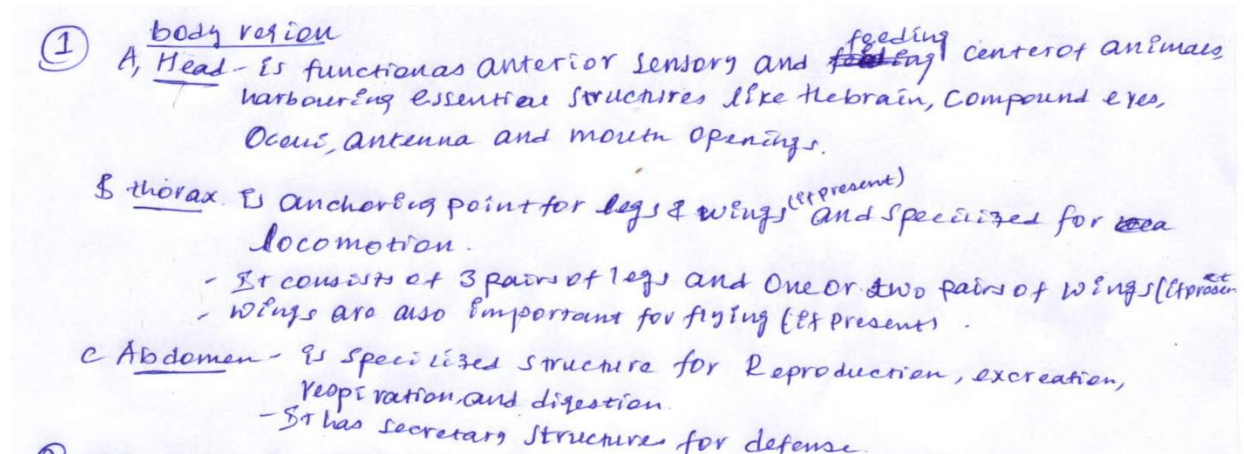 ① body region
A, Head - is functionas anterior sensory and feeding centerof animals,
harbouring essential structures like thebrain, Compound eyes,
Oceui, antenna and mouth openings.
B thorax. Is anchoring point for legs & wings (if present) and specilized for
locomotion.
- It consists of 3 pairs of legs and One or two pairs of wings (if present
- wings are also important for flying (if Present)
C Abdomen - is specilized structure for Reproduction, excreation,
respiration, and digestion
- It has secretary structures for defense.